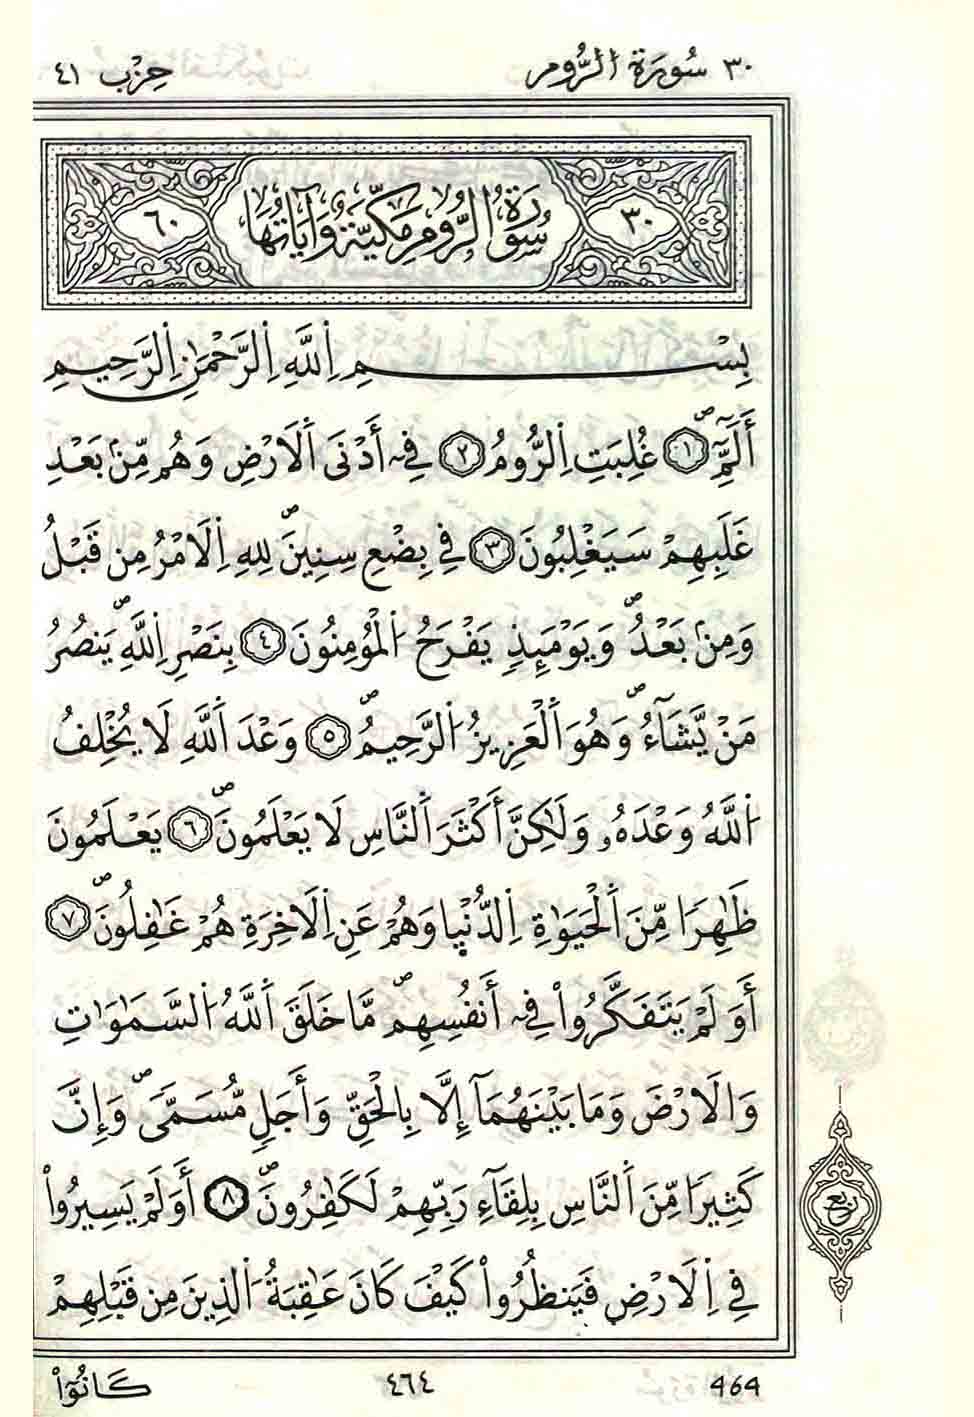 ٣٠ سُورَةُ الرُّومِ حِزْب ٤١
٣٠ سُورَةُ الرُّومِ مَكِّيَّةٌ وَآيَاتُهَا ٦٠
بِسْمِ اِللَّهِ اِلرَّحْمَٰنِ اِلرَّحِيمِ
أَلَٓمِّٓۖ ١ غُلِبَتِ اِلرُّومُ ٢ فِےٓ أَدْنَى اَلَارْضِ وَهُم مِّنۢ بَعْدِ
غَلَبِهِمْ سَيَغْلِبُونَ ٣ فِي بِضْعِ سِنِينَۖ لِلهِ اِلَامْرُ مِن قَبْلُ
وَمِنۢ بَعْدُۖ وَيَوْمَئِذٖ يَفْرَحُ اُلْمُومِنُونَ ٤ بِنَصْرِ اِللَّهِۖ يَنصُرُ
مَنْ يَّشَآءُۖ وَهُوَ اَلْعَزِيزُ اُلرَّحِيمُۖ ٥ وَعْدَ اَللَّهِ لَا يُخْلِفُ
اُللَّهُ وَعْدَهُۥ وَلَٰكِنَّ أَكْثَرَ اَلنَّاسِ لَا يَعْلَمُونَۖ ٦ يَعْلَمُونَ
ظَٰهِراٗ مِّنَ اَلْحَيَوٰةِ اِلدُّنْيٜا وَهُمْ عَنِ اِلَاخِرَةِ هُمْ غَٰفِلُونَۖ ٧
أَوَلَمْ يَتَفَكَّرُواْ فِےٓ أَنفُسِهِمۖ مَّا خَلَقَ اَللَّهُ اُلسَّمَٰوَٰتِ
وَالَارْضَ وَمَا بَيْنَهُمَآ إِلَّا بِالْحَقِّ وَأَجَلٖ مُّسَمّيٗۖ وَإِنَّ
كَثِيراٗ مِّنَ اَلنَّاسِ بِلِقَآءِ رَبِّهِمْ لَكَٰفِرُونَۖ ٨ أَوَلَمْ يَسِيرُواْ
فِي اِلَارْضِ فَيَنظُرُواْ كَيْفَ كَانَ عَٰقِبَةُ اُلذِينَ مِن قَبْلِهِمْ
ربع
464 ٤٦٤ كَانُوٓاْ